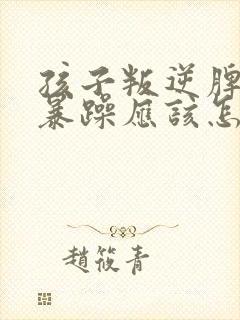 孩子叛逆脾
暴躁应该怎
趙筱青